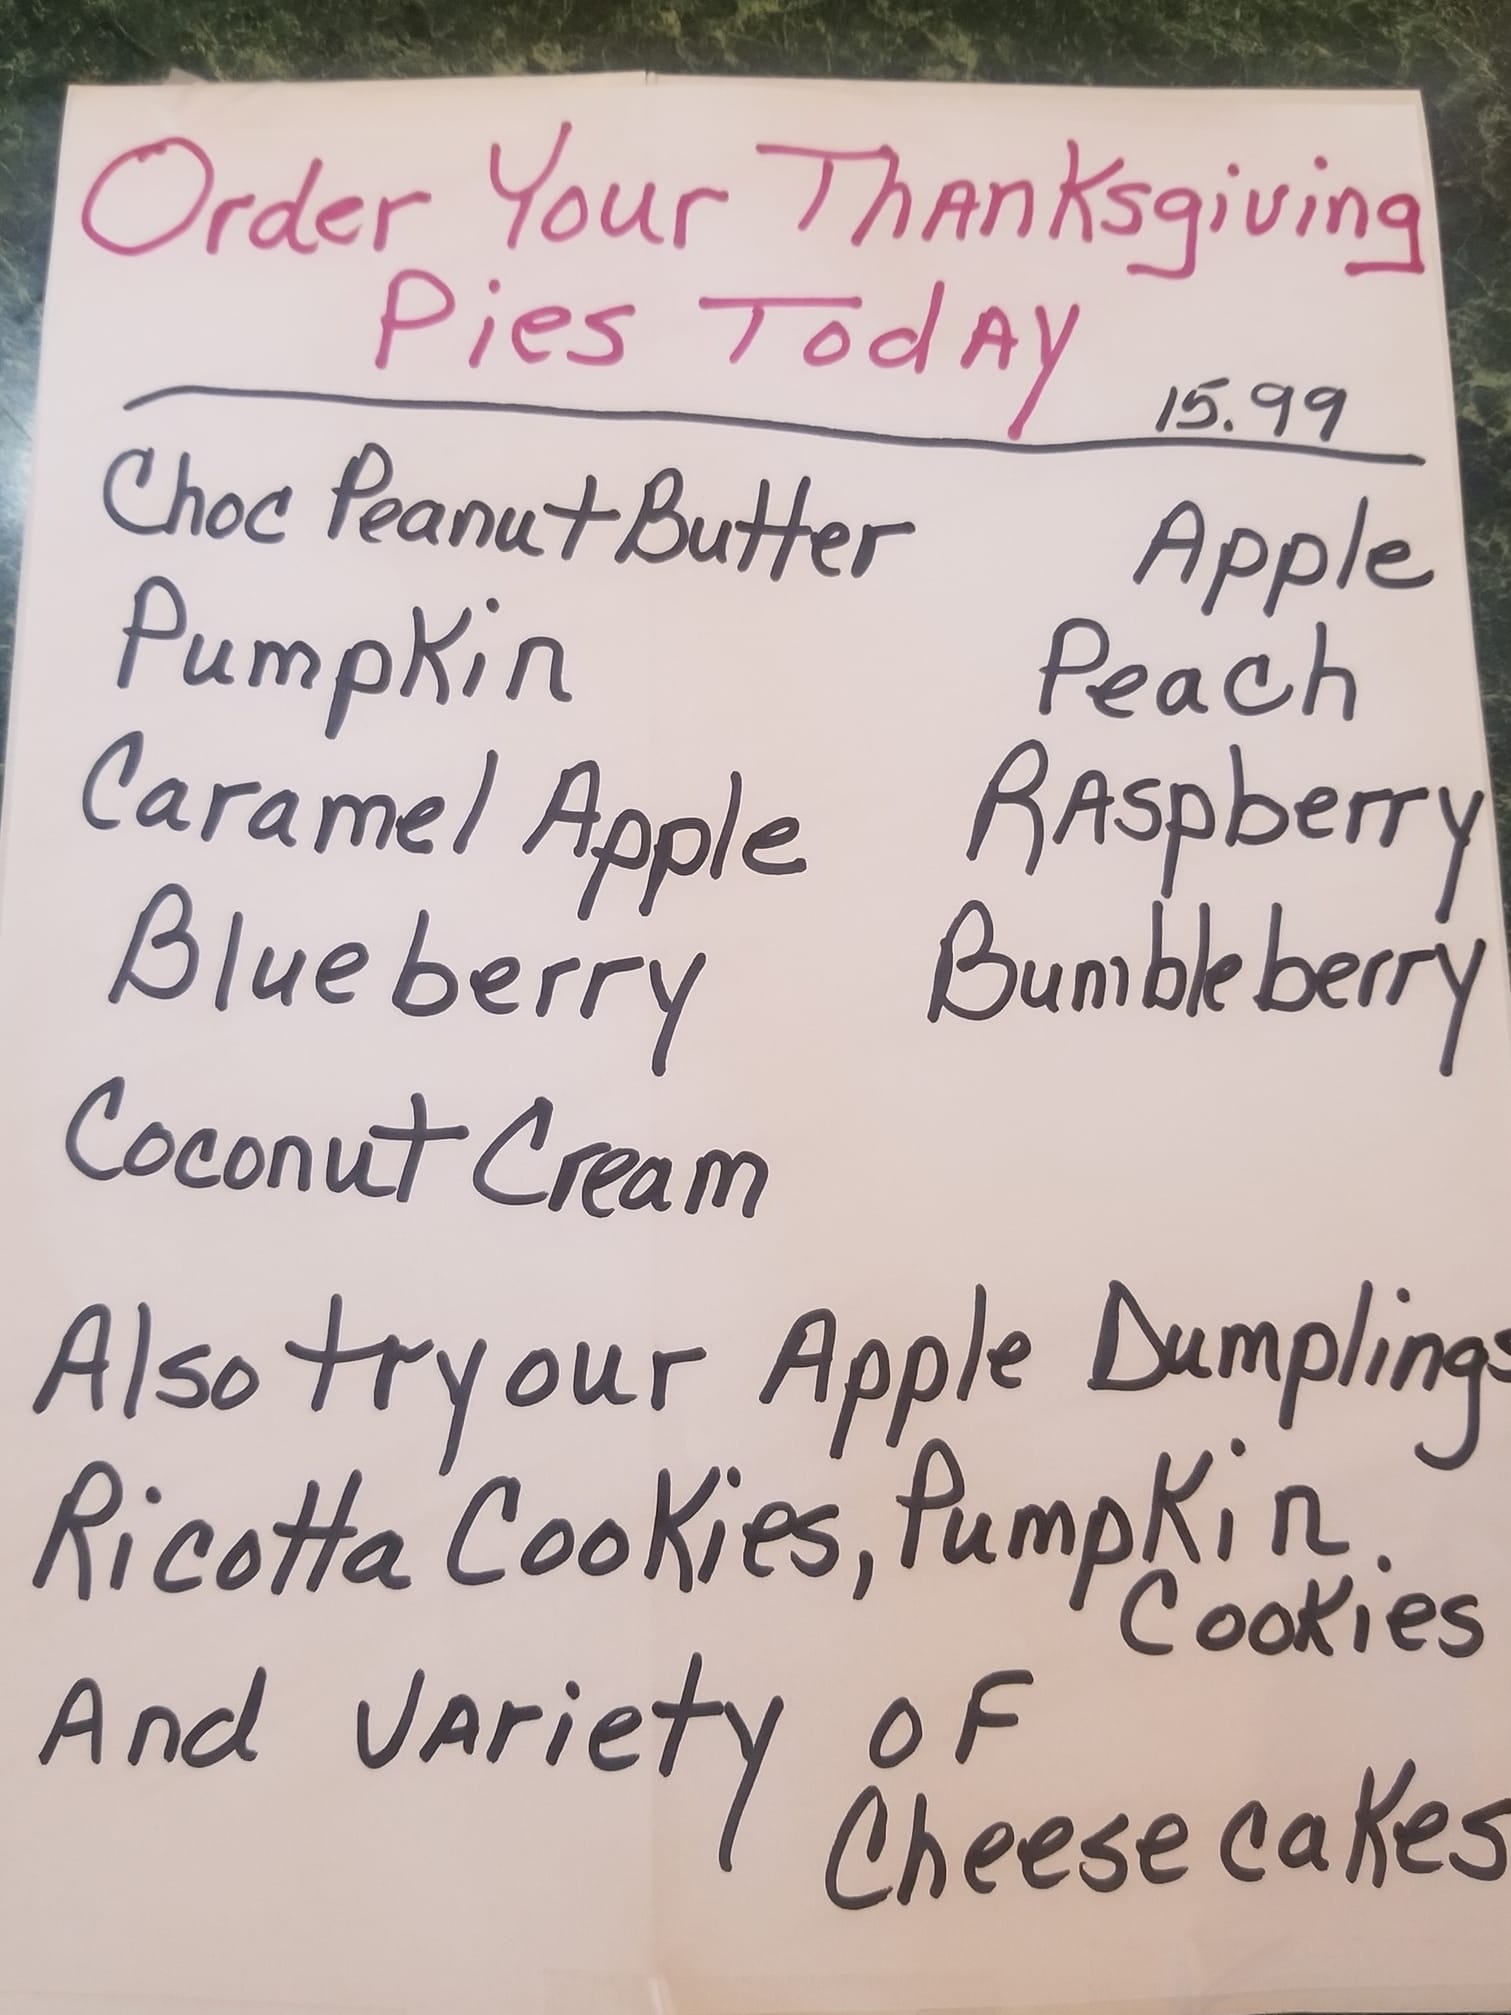 Order Your Thanksgiving
Pies Today
15.99
Choc Peanut Butter Apple
Pumpkin Peach
Caramel Apple Raspberry
Blueberry Bumbleberry
Coconut Cream
Also try our Apple Dumplings
Ricotta Cookies, Pumpkin.
Cookies
And Variety of
Cheesecakes